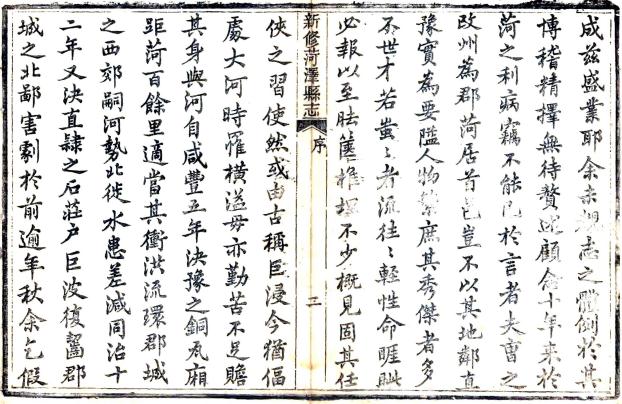 成兹盛業耶余未志之體例於其
博稽精擇無待贅述顧念十年來於
菏之利病竊不能已於言者夫曹之
改州為郡菏居首邑豈不以其地鄰直
豫實為要隘人物繁庶其秀傑者多
不世才若蚩〻者流往〻輕性命睚眦
必報以至胠篋椎埋不少概見固其任
新修菏澤縣志
序
三
俠之習使然或由古稱巨浸今猶偪
處大河時罹横溢毋亦勤苦不足贍
其身與河自咸豐五年決豫之銅瓦廂
距菏百餘里適當其衝洪流環郡城
之西郊嗣河勢北徙水患差減同治十
二年又決直隸之石莊户巨波復齧郡
城之北鄙害劇於前逾年秋余乞假